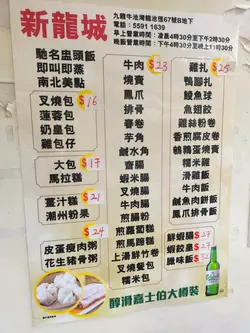 新龍城
九龍牛池灣龍池徑67號B地下
電話: 5591 1639
早上營業時間：凌晨4時30分至下午2時30分
晚飯營業時間：下午4時30分至晚上11時30分
馳名盅頭飯
即叫即蒸
南北美點
叉燒包
蓮蓉包
奶皇包
雞包仔
$16
大包
馬拉糕
$17
薑汁糕
潮州粉果
$21
皮蛋瘦肉粥
花生豬骨粥
$24
牛肉
燒賣
鳳爪
排骨
春卷
芋角
鹹水角
齋腸
蝦米腸
叉燒腸
牛肉腸
煎腸粉
煎蘿蔔糕
煎馬蹄糕
上湯鮮竹卷
叉燒餐包
糯米卷
$23
雞扎
鴨腳扎
鯪魚球
魚翅餃
雞絲粉卷
香煎腐皮卷
鵪鶉蛋燒賣
糯米雞
滑雞飯
牛肉飯
鹹魚肉餅飯
鳳爪排骨飯
$25
鮮蝦腸
蝦餃皇
臘味飯
$27
$27
$32
醉滑嘉士伯大樽裝